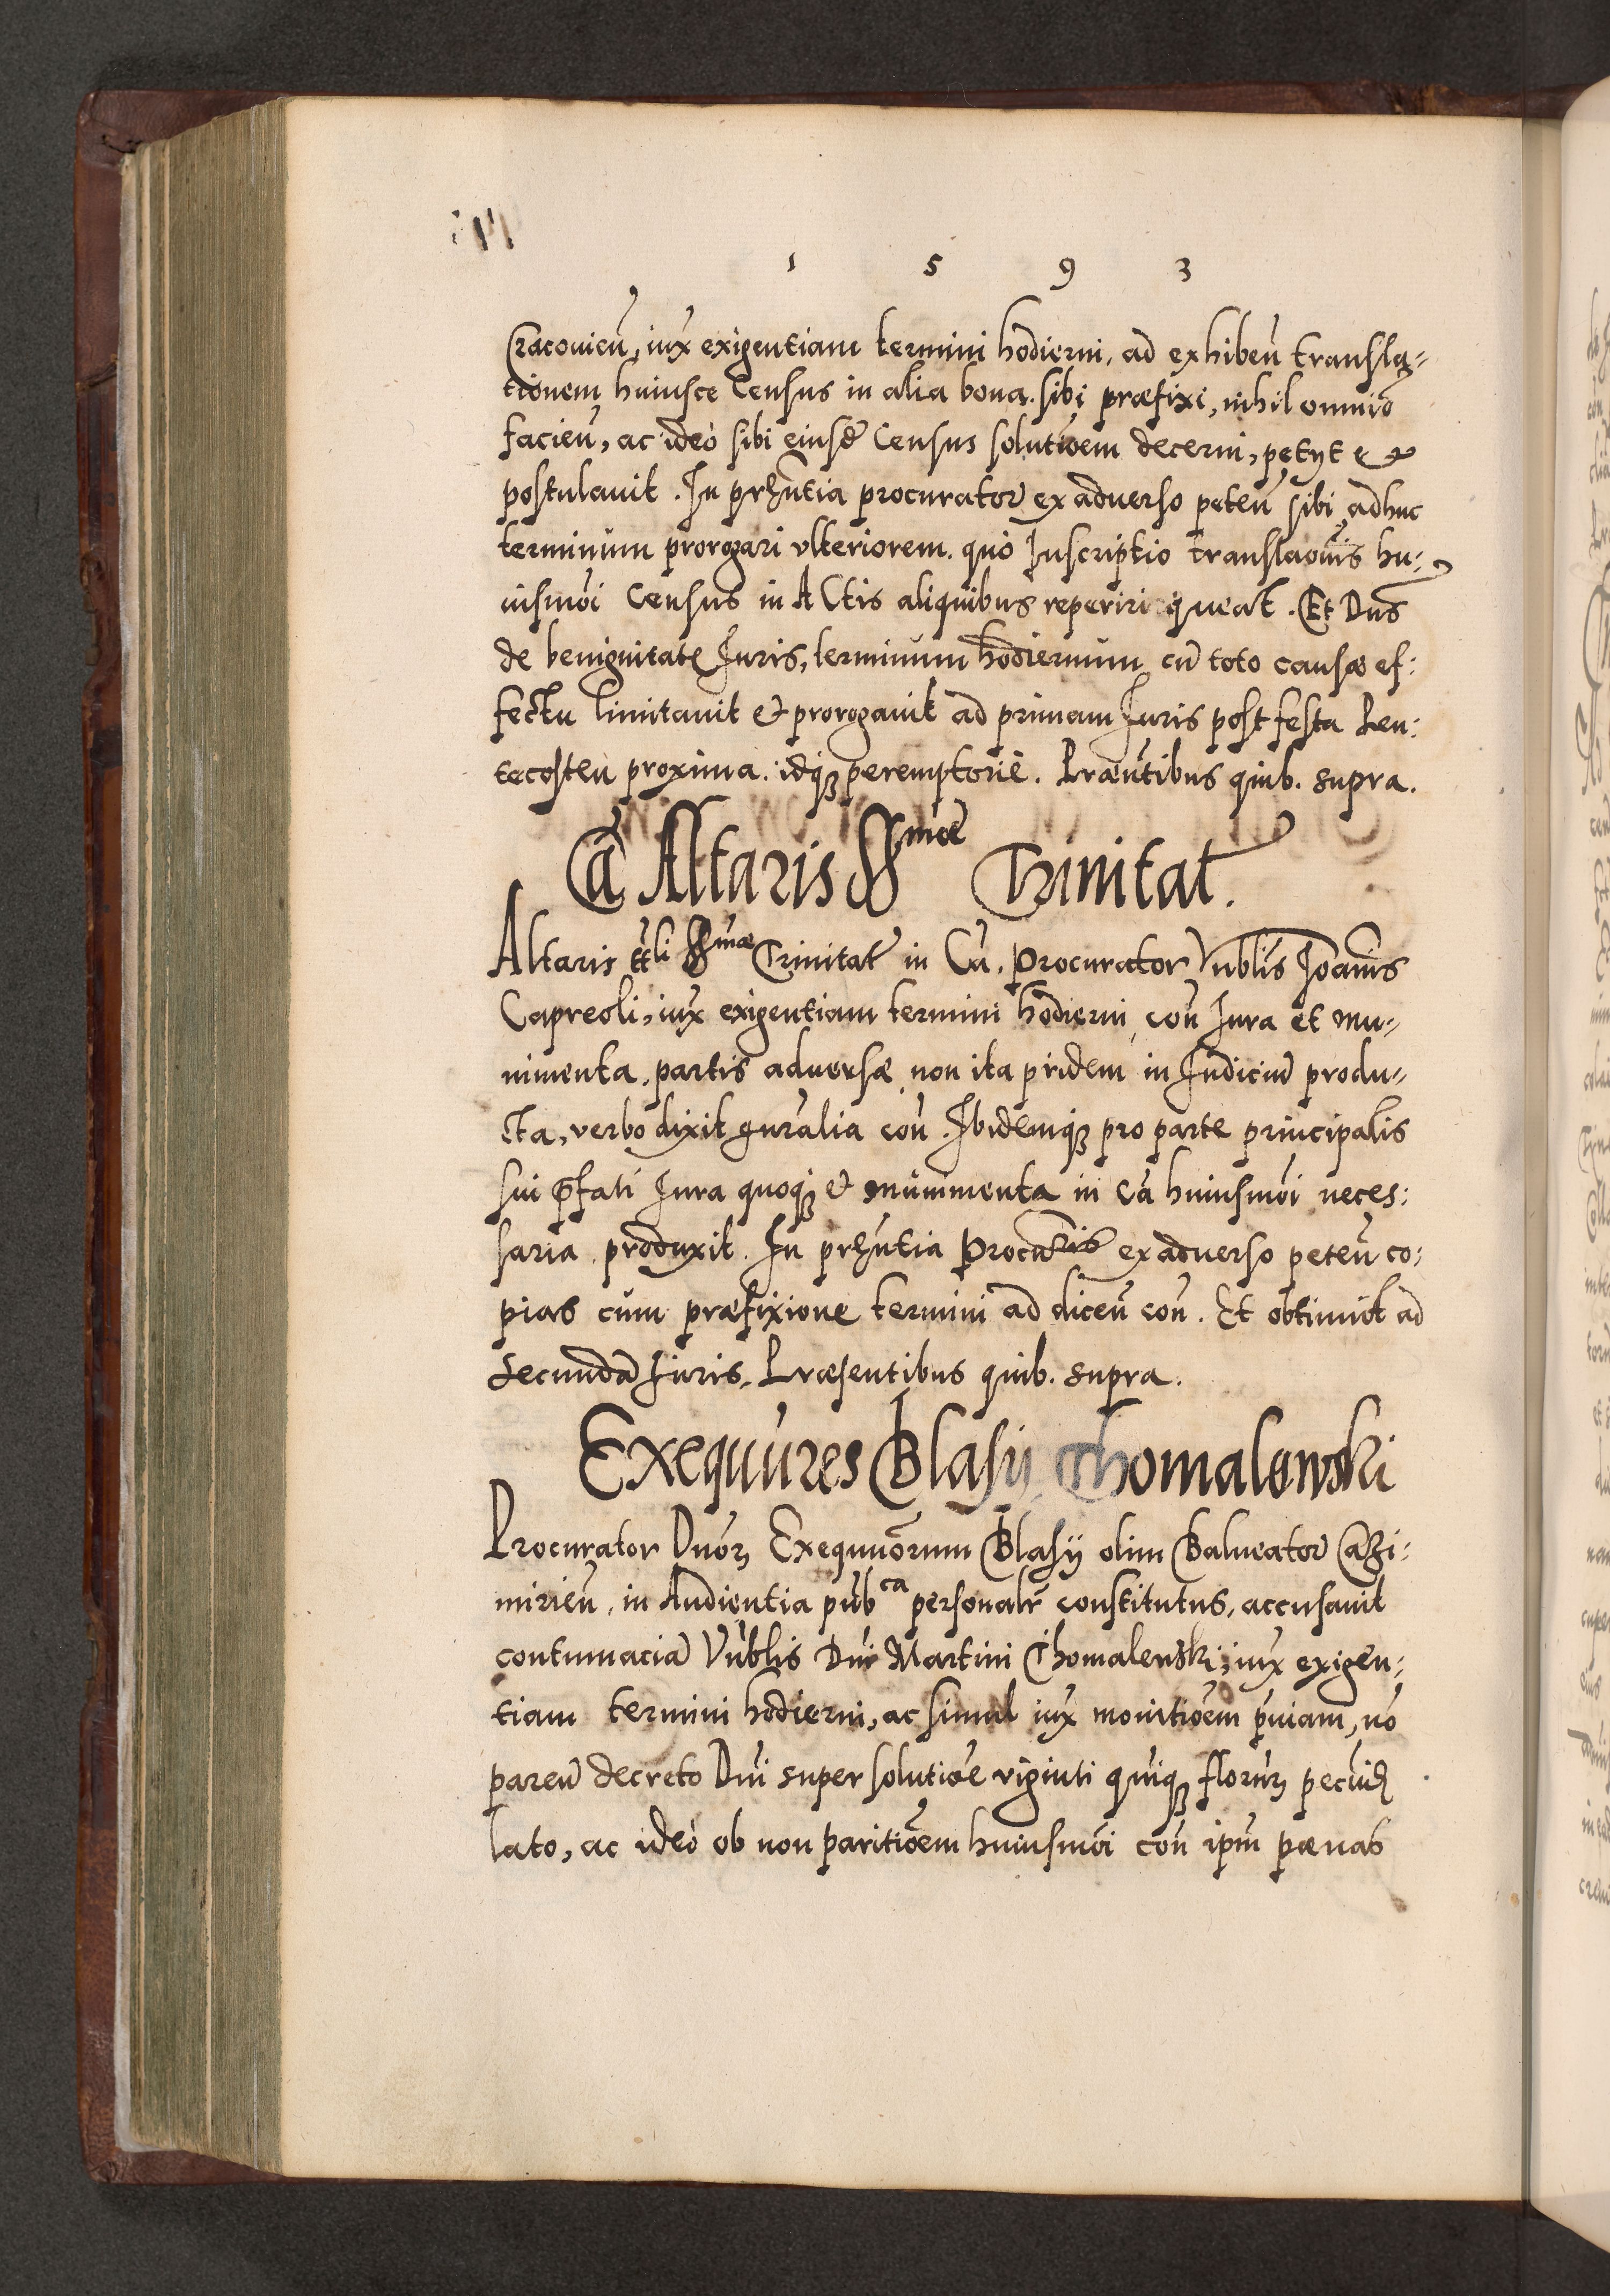 1 5 9 3
Cracouien̄, iux̄ exigentiam termini hodierni, ad exhiben̄ transla-
tionem huiusce Census in alia bona sibi præfixi, nihil omnio
facien̄, ac ideo sibi eiusd̄ Census solutioem decerni, petyt et
postulauit. In prn̄tia procurator ex aduerso peten̄ sibi adhuc
terminum prorogari vlteriorem, quo Inscriptio translaōnis hu-
iusmōi Census in Actis aliquibus reperiri queat. Et Dn̄s
de benignitate Iuris, terminum hodiernum cū toto causæ ef:
fectu limitauit et prorogauit ad primam Iuris post festa Pen:
tecosten proxima. idq; peremptorie. Præn̄tibus quib. supra.
Cā Altaris SSmæ Trinitat.
Altaris ttli SSmæ Trinitat in Cā. Procurator Vn̄blis Ioānis
Capreoli, iux̄ exigentiam termini hodierni, con̄ Iura et mu-
nimenta partis aduersæ non ita pridem in Iudiciū produ-
cta, verbo dixit gn̄ralia con̄. Ibidemq; pro parte principalis
sui p̄fati Iura quoq; et munimenta in cā huiusmōi neces:
saria produxit. In prn̄tia Procuris ex aduerso peten̄ co:
pias cum præfixione termini ad dicen̄ con̄. Et obtinuit ad
secundā Iuris, Præsentibus quib. supra.
Exequūres Blasij Thomalewski
Procurator Dn̄or; Exequūorum Blasij olim Balneator Cazi:
mirien̄, in Audientia pubca personalr̄ constitutus, accusauit
contumaciā Vn̄blis Dn̄i Martini Thomalewski, iux̄ exigen-
tiam termini hodierni, ac simul iux̄ monitioem p̄uiam, nō
paren̄ decreto Dn̄i super solutioē viginti quiq; florūr; pecuīs
lato, ac ideo ob non paritioēm huiusmōi con̄ ipm̄ pænas